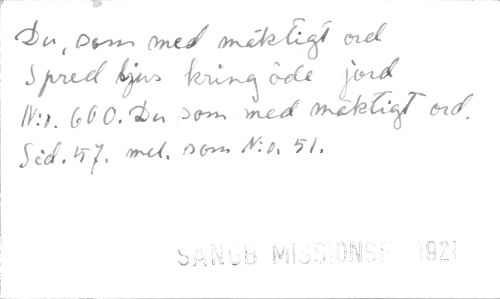 Du, som med mäktigt ord
Spred ljus kring öde jord
N:o. 600. Du som med mäktigt ord.
Sid. 57. mel. som N:o. 51.
SANGB MISSIONSF 1921